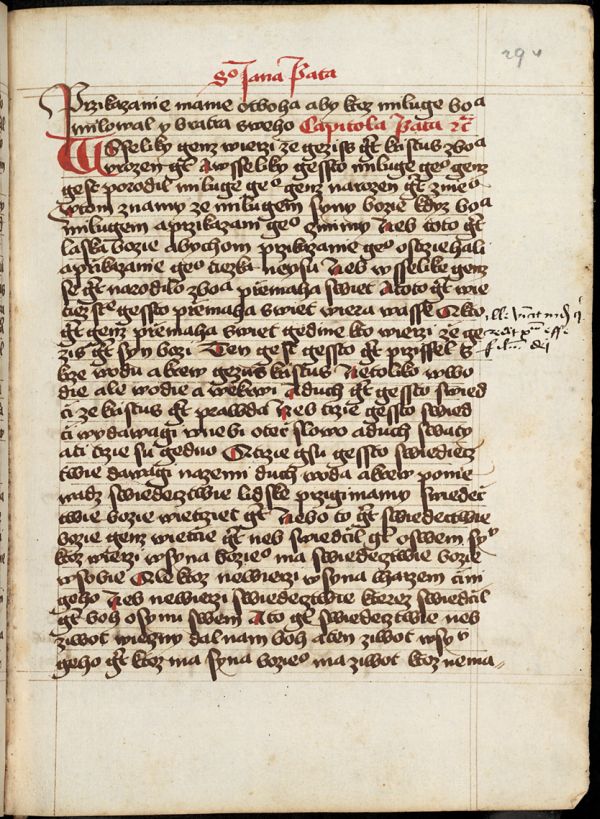 29v
S° Jana Pata
Przikazanie mame otboha aby ktoz miluge boa
milowal y bratra sweho Capitola Pata
WSseliky genz wierzi ze geziss gt kristus zboa
vrozen gt Awsseliky gessto miluge geo genz
gest porodil miluge geo genz narozen gt znieo
Wtom znamy ze milugem syny bozie kdyz boa
milugem aprzikazani geo zinimy Neb toto gt
laska bozie abychom przikazanie geo ostziehali
aprikazanie geo tiezka nepsu Neb wsselike genz
se gt narodilo zboa premaha swiet Atoto gt wie
gessto premaha swiet wiera wasse Kto
gt genz premaha swiet gedine kto wierzi ze ge
zis gt syn bozi Ten gest gessto gt prissel s
kze wodu akrew gezus kristus Netoliko wwo
die ale wodie a wekrwi Aduch gt gessto swied
ci ze kristus gt prawda Neb trzie gessto swied
ci wydawagi wnebi otec slowo aduch swaty
ati trzie su gedno Atrzie gsu gessto swiedecz
twie dawagi nazemi duch woda akrew ponie
wadz swiedecztwie lidske przigimamy swiedec
twie bozie wietziet gt Nebo to gt swiedectwie
bozie genz wietcie gt neb swiedcil gt oswem sy
ktoz wierzi wsyna bozieo ma swiedecztwie bozie
wsobie Ale ktoz newierzi wsyna lharzem cini
geho Neb newierzi swiedecztwie kterez swiedcil
gt boh osynu swem Ato gt swiedecztwie neb
ziwot wieczny dal nam boh aten ziwot wsy
geho gt ktoz ma syna bozieo ma ziwot ktoz nema